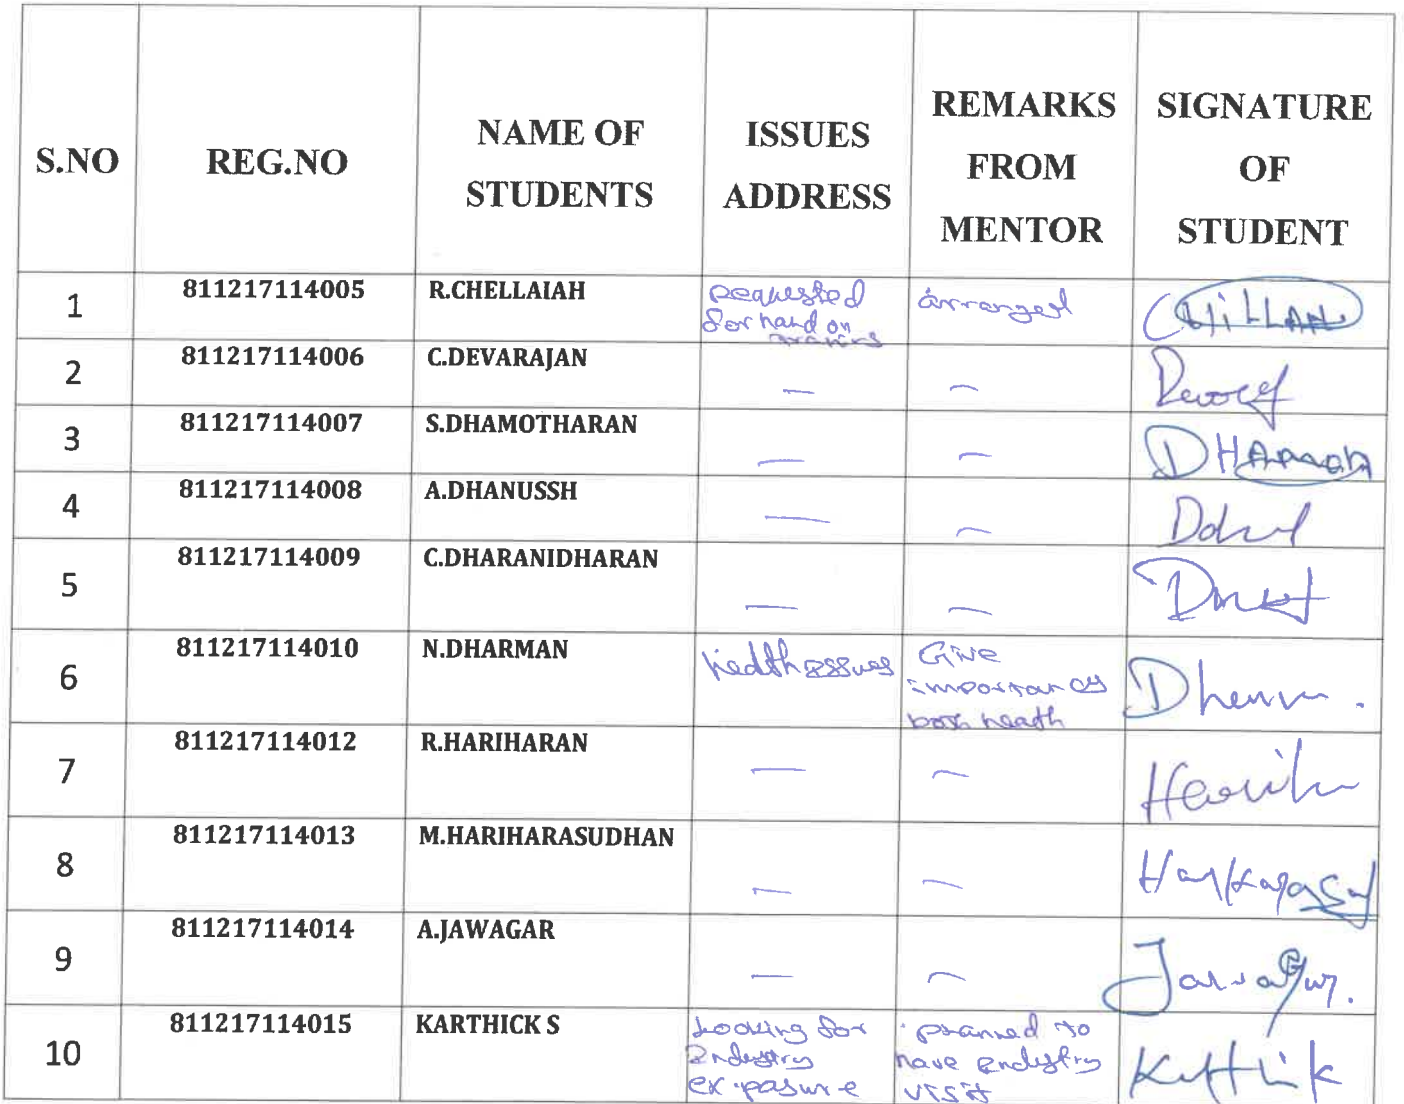 S.NO REG.NO NAME OF STUDENTS ISSUES ADDRESS REMARKS FROM MENTOR SIGNATURE OF STUDENT
1 811217114005 R.CHELLAIAH requested for hand on arranged
2 811217114006 C.DEVARAJAN — —
3 811217114007 S.DHAMOTHARAN — —
4 811217114008 A.DHANUSSH — —
5 811217114009 C.DHARANIDHARAN — —
6 811217114010 N.DHARMAN health issues Give health
7 811217114012 R.HARIHARAN — —
8 811217114013 M.HARIHARASUDHAN — —
9 811217114014 A.JAWAGAR — —
10 811217114015 KARTHICK S Looking for Industry exposure planned to have industry visit Karthik